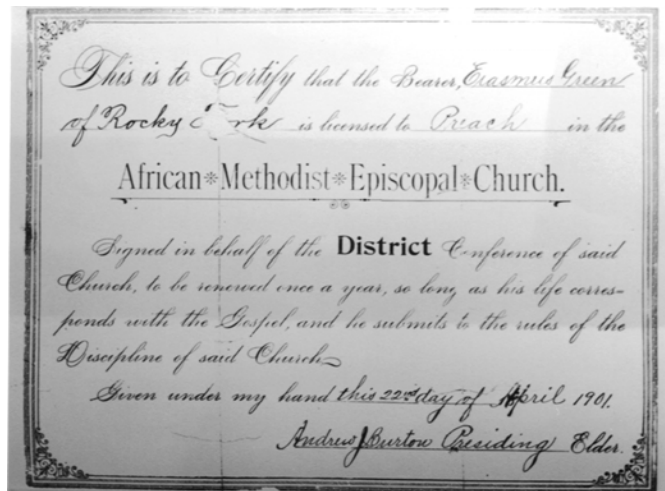 This is to Certify that the Bearer, Erasmus Green
of Rocky Fork is licensed to Preach in the
African Methodist Episcopal Church.
Signed in behalf of the District Conference of said
Church, to be renewed once a year, so long as his life corres-
ponds with the Gospel, and he submits to the rules of the
Discipline of said Church
Given under my hand this 22nd day of April 1901.
Andrew J Burton Presiding Elder.